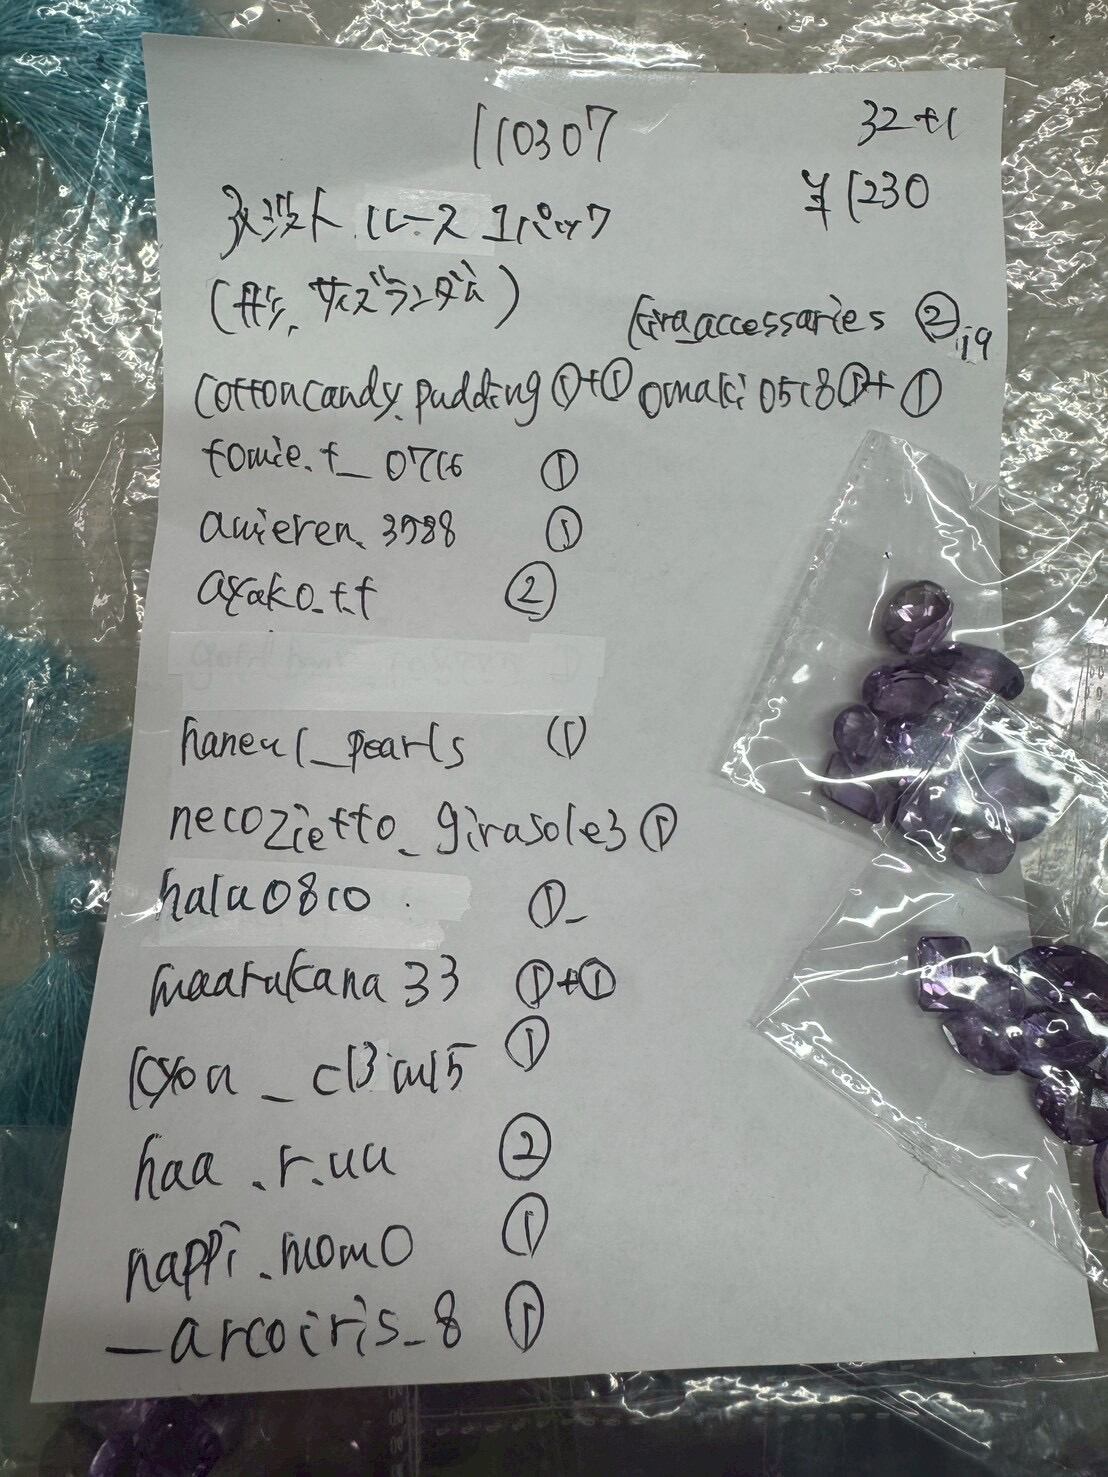 110307
32+1
¥1230
アメジスト ルース 1パック
(形、サイズランダム)
kira_accessaries ② .19
cottoncandy.pudding ①+① omaki0518 ①+①
tomie.t_0716 ①
amieren.3988 ①
ayako.t.t ②
haneul_pearls ①
necozietto_girasole3 ①
halu0810 ①
maarukana33 ①+①
①
haa.r.uu ②
nappi.momo ①
_arcoiris_8 ①